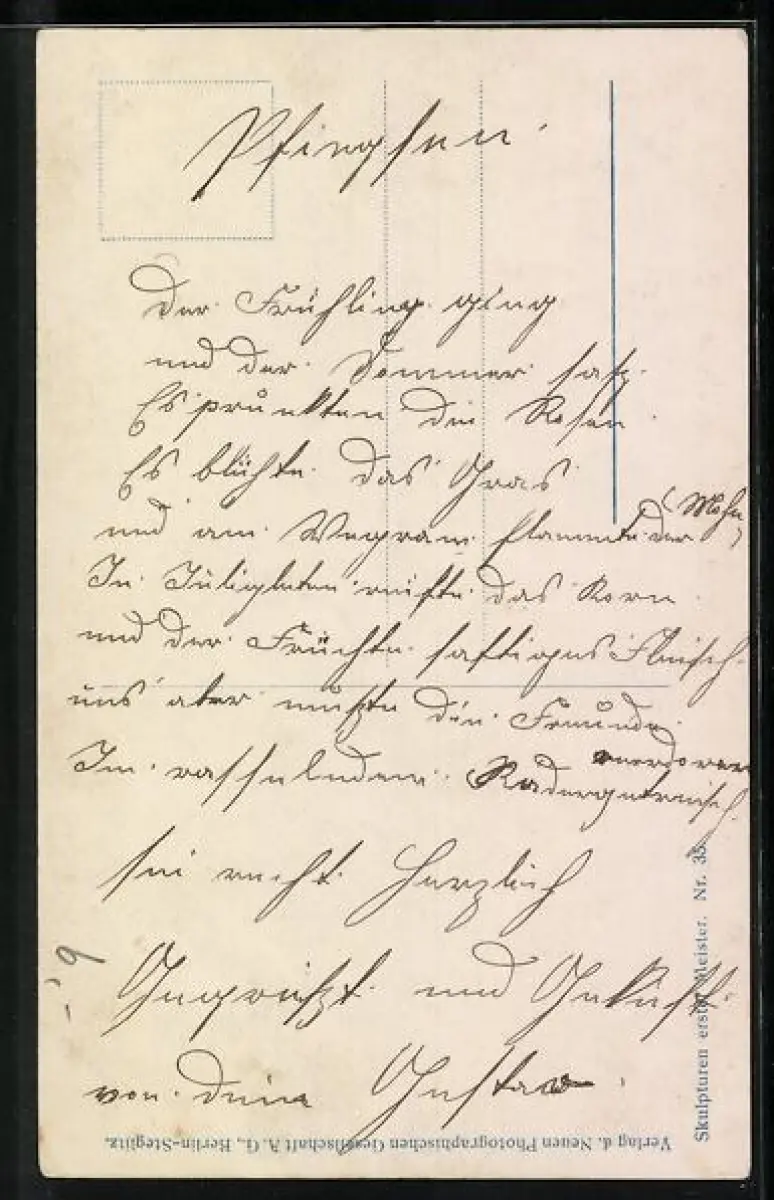 Pfingsten.
Der Frühling ging
und der Sommer saß.
Es prunkten die Rosen.
Es blühte das Gras
und am Wegran flammte der (Mohn)
In Juligluten reifte das Korn
und der Früchte saftiges Fleisch.
uns aber mußte die Freunde
Im rasselnden Radergetreisch.
sei recht Herzlich
Gegrüßt und Geküßt.
von dein Gustav.
Skulpturen erster Meister. Nr. 35.
Verlag d. Neuen Photographischen Gesellschaft A. G., Berlin-Steglitz.